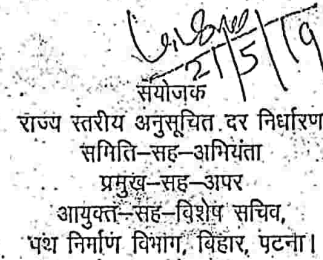 21/5/19
संयोजक
राज्य स्तरीय अनुसूचित दर निर्धारण
समिति–सह–अभियंता
प्रमुख–सह–अपर
आयुक्त–सह–विशेष सचिव,
पथ निर्माण विभाग, बिहार, पटना।